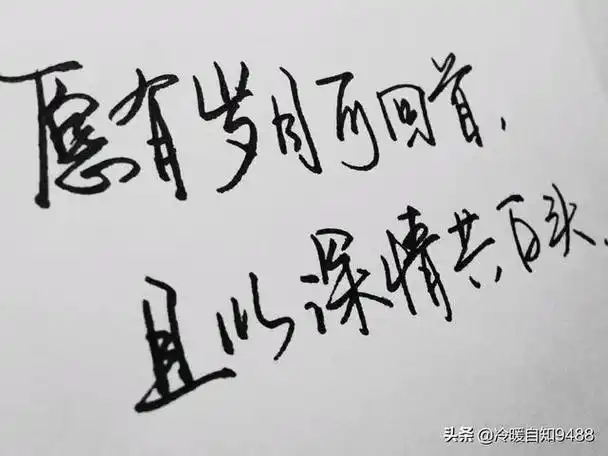 愿有岁月可回首，
且以深情共百头、
头条 @冷暖自知9488